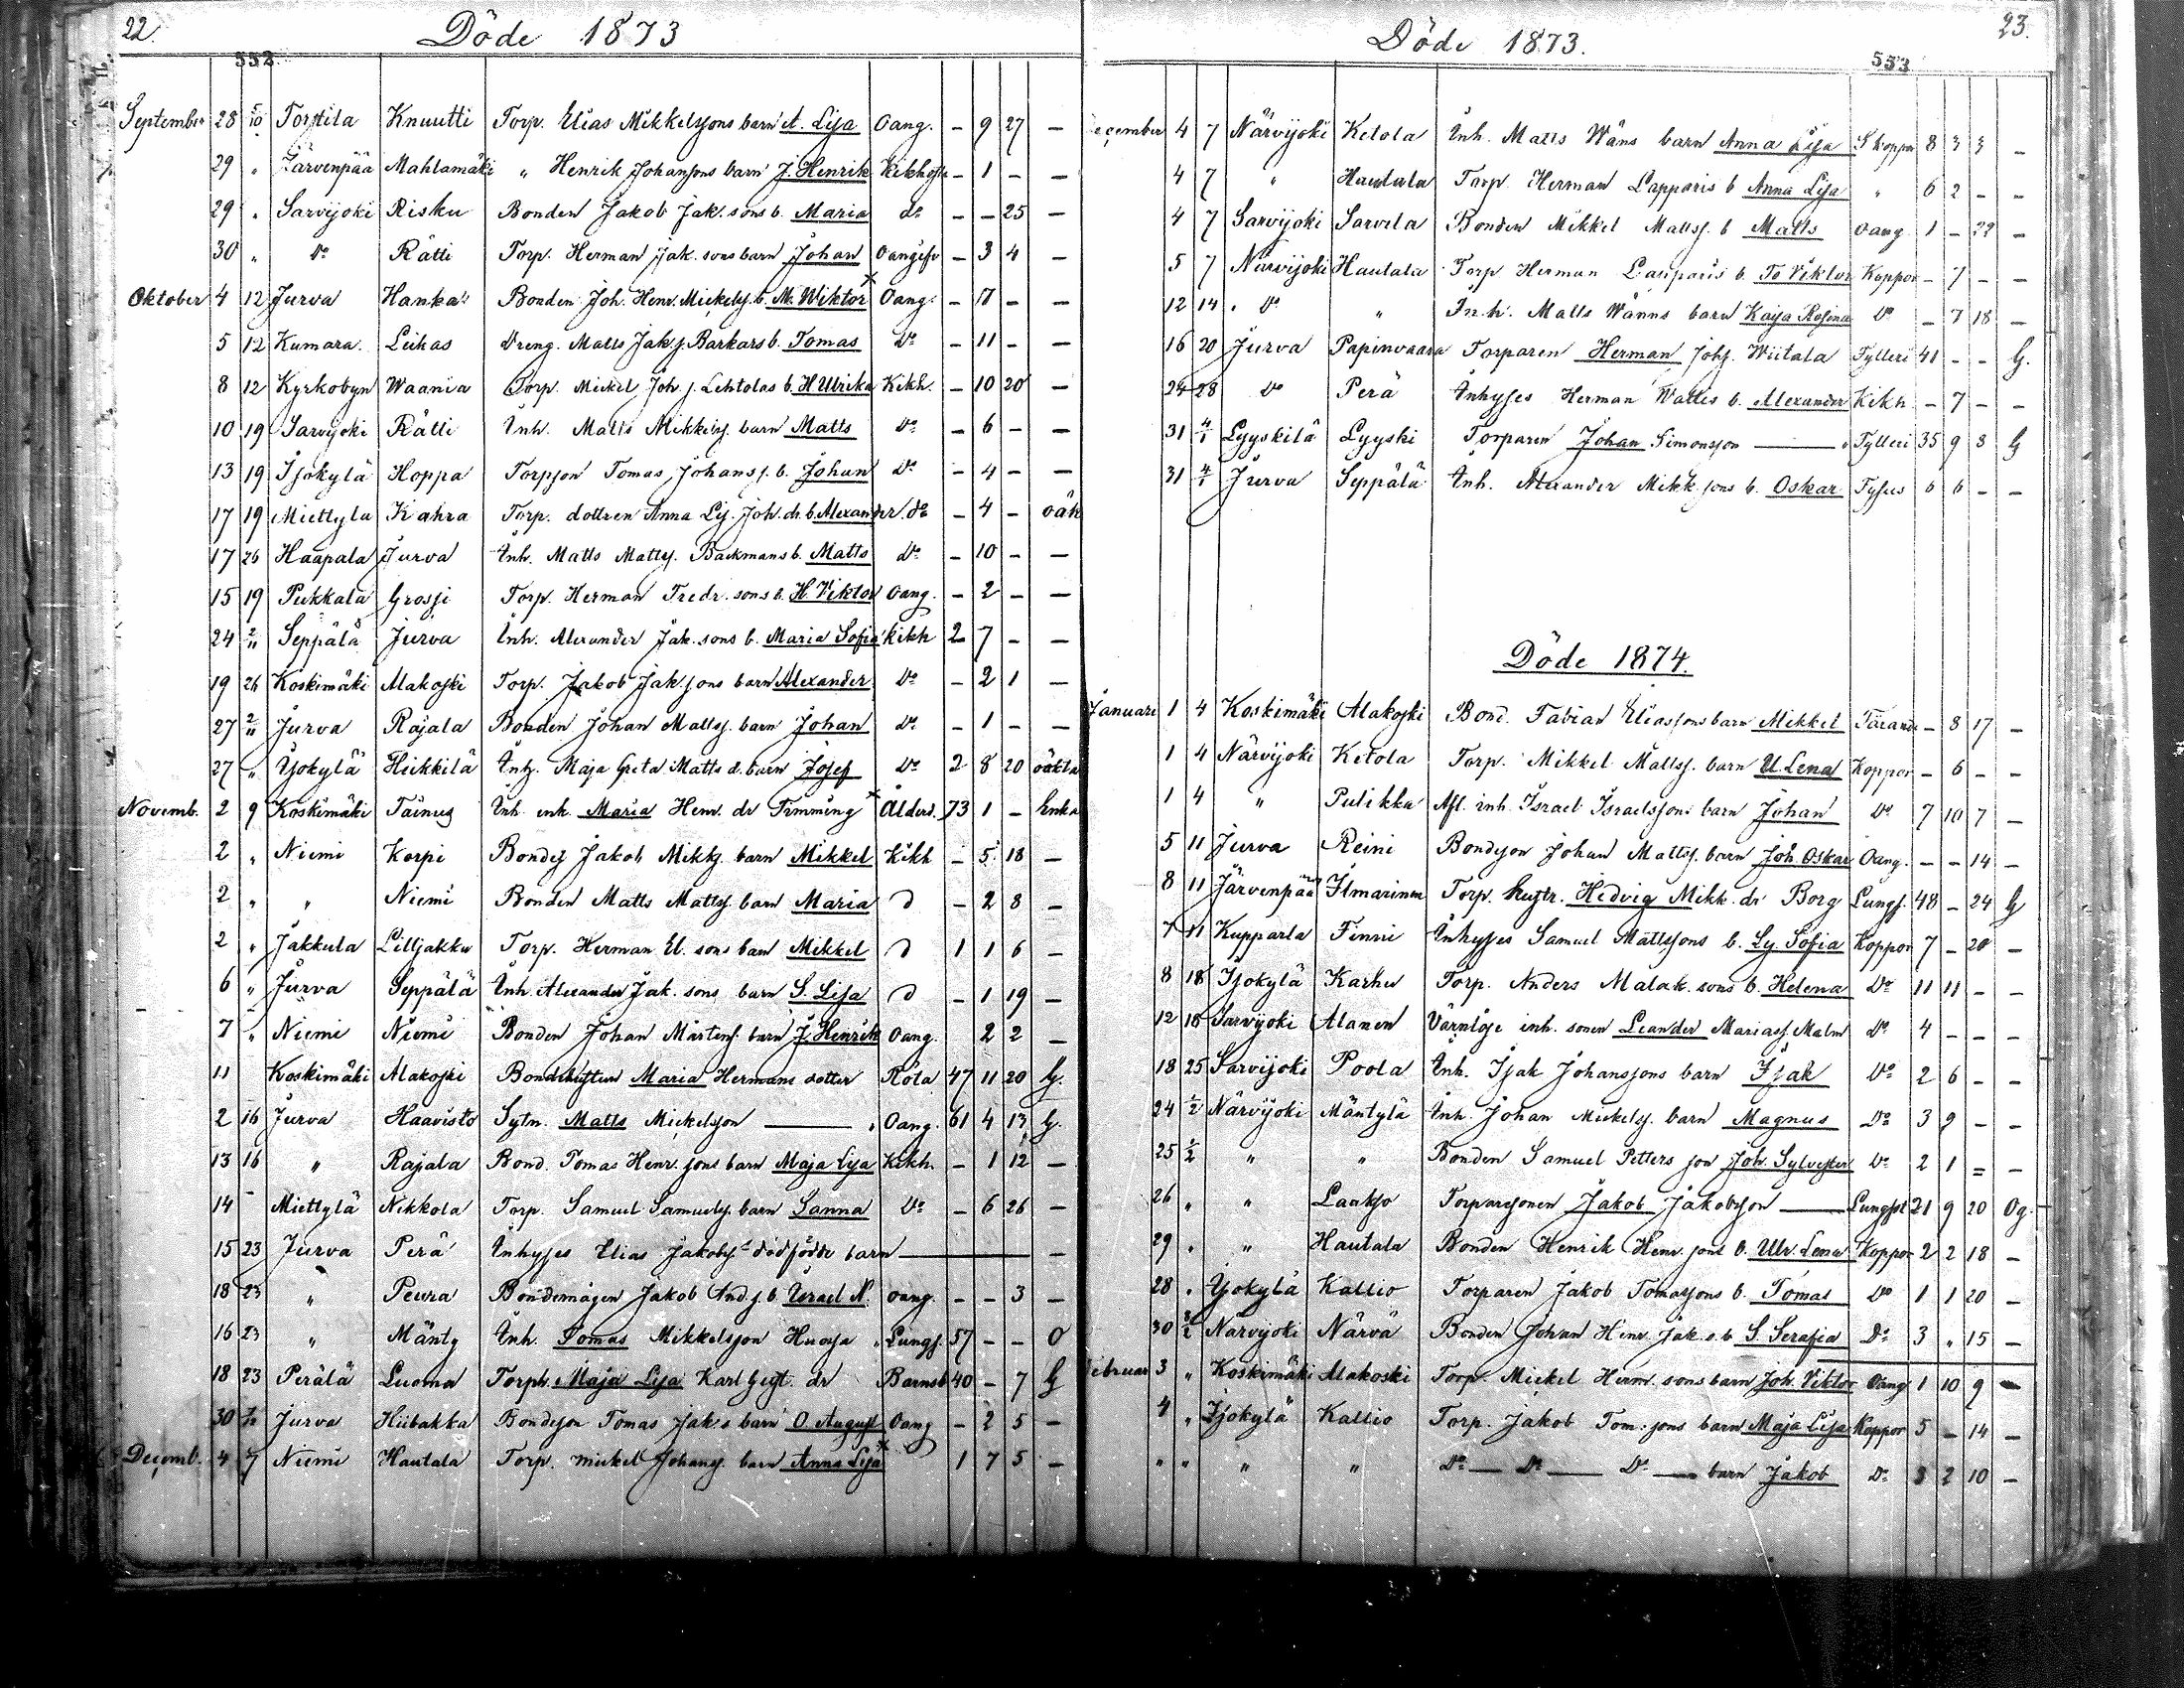 22.
Döde 1873
552
September 28 5/10 Torttila Knuutti Torp. Elias Mikkelssons barn A. Lisa Oang. - 9 27 -
29 " Järvenpää Mahlamäki " Henrik Johanssons barn J. Henrik Kikhosta - 1 - -
29 " Sarvijoki Risku Bonden Jakob Jak. sons b. Maria do - - 25 -
30 " Do Rätti Torp. Herman Jak. sons barn Johan Oangifv - 3 4 -
Oktober 4 12 Jurva Hanka Bonden Joh. Henr. Mickels. b. M. Wiktor Oang. - 11 - -
5 12 Kumara Luhas Dreng. Matts Jak. s. Barkars b. Tomas Do - 11 - -
8 12 Kyrkobyn Waania Torp. Mickel Joh. s. Lehtolas b. H Ulrika Kikh. - 10 20 -
10 19 Sarvijoki Rätti Inh. Matts Mikkels. barn Matts Do - 6 - -
13 19 Isokylä Hoppa Torpson Tomas Johans s. b. Johan Do - 4 - -
17 19 Miettylä Kahra Torp. dottren Anna Ls. Joh. dr. b. Alexander do - 4 - oäk
17 26 Haapala Jurva Inh. Matts Matts. Backmans b. Matts do - 10 - -
15 19 Pukkala Grossi Torp. Herman Fredr. sons b. H. Viktor Oang. - 2 - -
24 2/11 Seppälä Jurva Inh. Alexander Jak. sons b. Maria Sofia Kikh 2 7 - -
19 26 Koskimäki Alakoski Torp. Jakob Jak. sons barn Alexander Do - 2 1 -
27 2/11 Jurva Rajala Bonden Johan Matts. barn Johan Do - 1 - -
27 " Isokylä Heikkilä Inh. Maja Greta Matts d. barn Josef Do 2 8 20 oäkta
Novemb. 2 9 Koskimäki Tainus Inh. enk. Maria Henr. dr Trimming Ålderd. 73 1 - Enka
2 " Niemi Korpi Bondes Jakob Mikks. barn Mikkel Kikh - 5 18 -
2 " " Niemi Bonden Matts Matts. barn Maria D - 2 8 -
2 " Jakkula Lilljakku Torp. Herman El. sons barn Mikkel D 1 1 6 -
6 " Jurva Seppälä Inh. Alexander Jak. sons barn S. Lisa D - 1 19 -
7 " Niemi Niemi Bonden Johan Mårtens. barn J. Henrik Oang. 2 2 -
11 Koskimäki Alakoski Bondehustrun Maria Hermans dotter Röta 47 11 20 G.
2 16 Jurva Haavisto Sytn. Matts Mickelsson Oang. 61 4 13 G.
13 16 " Rajala Bond. Tomas Henr. sons barn Maja Lisa Kikh. - 1 12 -
14 Miettylä Nikkola Torp. Samuel Samuels. barn Sanna Do - 6 26 -
15 23 Jurva Perä Inhyses Elias Jakobs. dödfödde barn -
18 23 " Peura Bondemågen Jakob And. s. b. Israel N. oang. - - 3 -
16 23 " Mänty Inh. Tomas Mikkelsson Huosa Lungs. 57 - - O
18 23 Perälä Luoma Torph. Maja Lisa Karl Gust. dr Barnsb 40 - 7 G
30 Jurva Hiibakka Bondeson Tomas Jak. s barn O. August Oang - 2 5 -
Decemb. 4 7 Niemi Hautala Torp. Mickel Johans. barn Anna Lisa 1 7 5 -
Döde 1873.
23.
553
ecember 4 7 Närvijoki Ketola Inh. Matts Wäns barn Anna Lisa S koppor 8 3 3 -
4 7 " Hautala Torp. Herman Lapparis b Anna Lisa " 6 2 - -
4 7 Sarvijoki Sarvela Bonden Mikkel Matts. b Matts Oang 1 - 29 -
5 7 Närvijoki Hautala Torp Herman Lapparis b. To Viktor Koppor - 7 - -
12 14 " Do " Inh. Matts Wänns barn Kaja Rosina Do - 7 18 -
16 20 Jurva Papinvaara Torparen Herman Johs. Wiitala Tylleri 41 - - G.
24 28 Do Perä Inhyses Herman Walles b. Alexander Kikh - 7 - -
31 4/1 Lyyskilä Lyyski Torparen Johan Simonsson Tylleri 35 9 8 G
31 4/1 Jurva Seppälä Inh. Alexander Mikk. sons b. Oskar Tyfus 6 6 - -
Döde 1874.
Januari 1 4 Koskimäki Alakoski Bond. Fabian Eliassons barn Mikkel Tärande - 8 17 -
1 4 Närvijoki Ketola Torp. Mikkel Matts. barn U. Lena Koppor - 6 - -
1 4 " Pulikka Afl. inh. Israel Israelssons barn Johan Do 7 10 7 -
5 11 Jurva Reini Bondson Johan Matts. barn Joh. Oskar Oang. - - 14 -
8 11 Järvenpää Ilmarinen Torp. hustr. Hedvig Mikk. dr Borg Lungs. 48 - 24 G
7 11 Kupparla Finni Inhyses Samuel Mattssons b. Ls. Sofia Koppor 7 - 20 -
8 18 Isokylä Karhu Torp. Anders Malak. sons b. Helena Do 11 11 - -
12 18 Sarvijoki Alanen Värnlöse inh. sonen Leander Mariass. Malm Do 4 - - -
18 25 Sarvijoki Poola Inh. Isak Johanssons barn Isak Do 2 6 - -
24 1/2 Närvijoki Mäntylä Inh. Johan Mickels. barn Magnus Do 3 9 - -
25 1/2 " " Bonden Samuel Petters son Joh. Sylvester Do 2 1 = -
26 " " Laakso Torparsonen Jakob Jakobsson Lungsot 21 9 20 Og.
29 " " Hautala Bonden Henrik Henr. sons b. Ulr. Lena Koppor 2 2 18 -
28 " Isokylä Kallio Torparen Jakob Tomassons b. Tomas Do 1 1 20 -
30 8/2 Närvijoki Närvä Bonden Johan Henr. Jak. s. b S. Serafia Do 3 " 15 -
Februar 3 " Koskimäki Alakoski Torp. Mickel Herm. sons barn Joh. Viktor Oang 1 10 9 -
4 " Isokylä Kallio Torp. Jakob Tom. sons barn Maja Lisa Koppor 5 - 14 -
" " " " Do Do Do barn Jakob Do 3 2 10 -